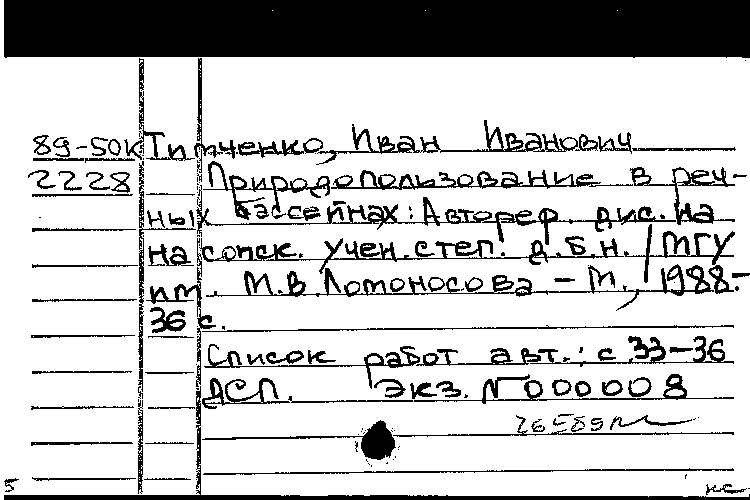 89-50к Тимченко, Иван Иванович
2228 Природопользование в реч-
ных бассейнах: Автореф. дис. на
на соиск. учен. степ. д.б.н. / МГУ
им. М.В. Ломоносова - М., 1988.-
36 с.
Список работ авт.: с 33-36
ДСП. Экз. №000008
5